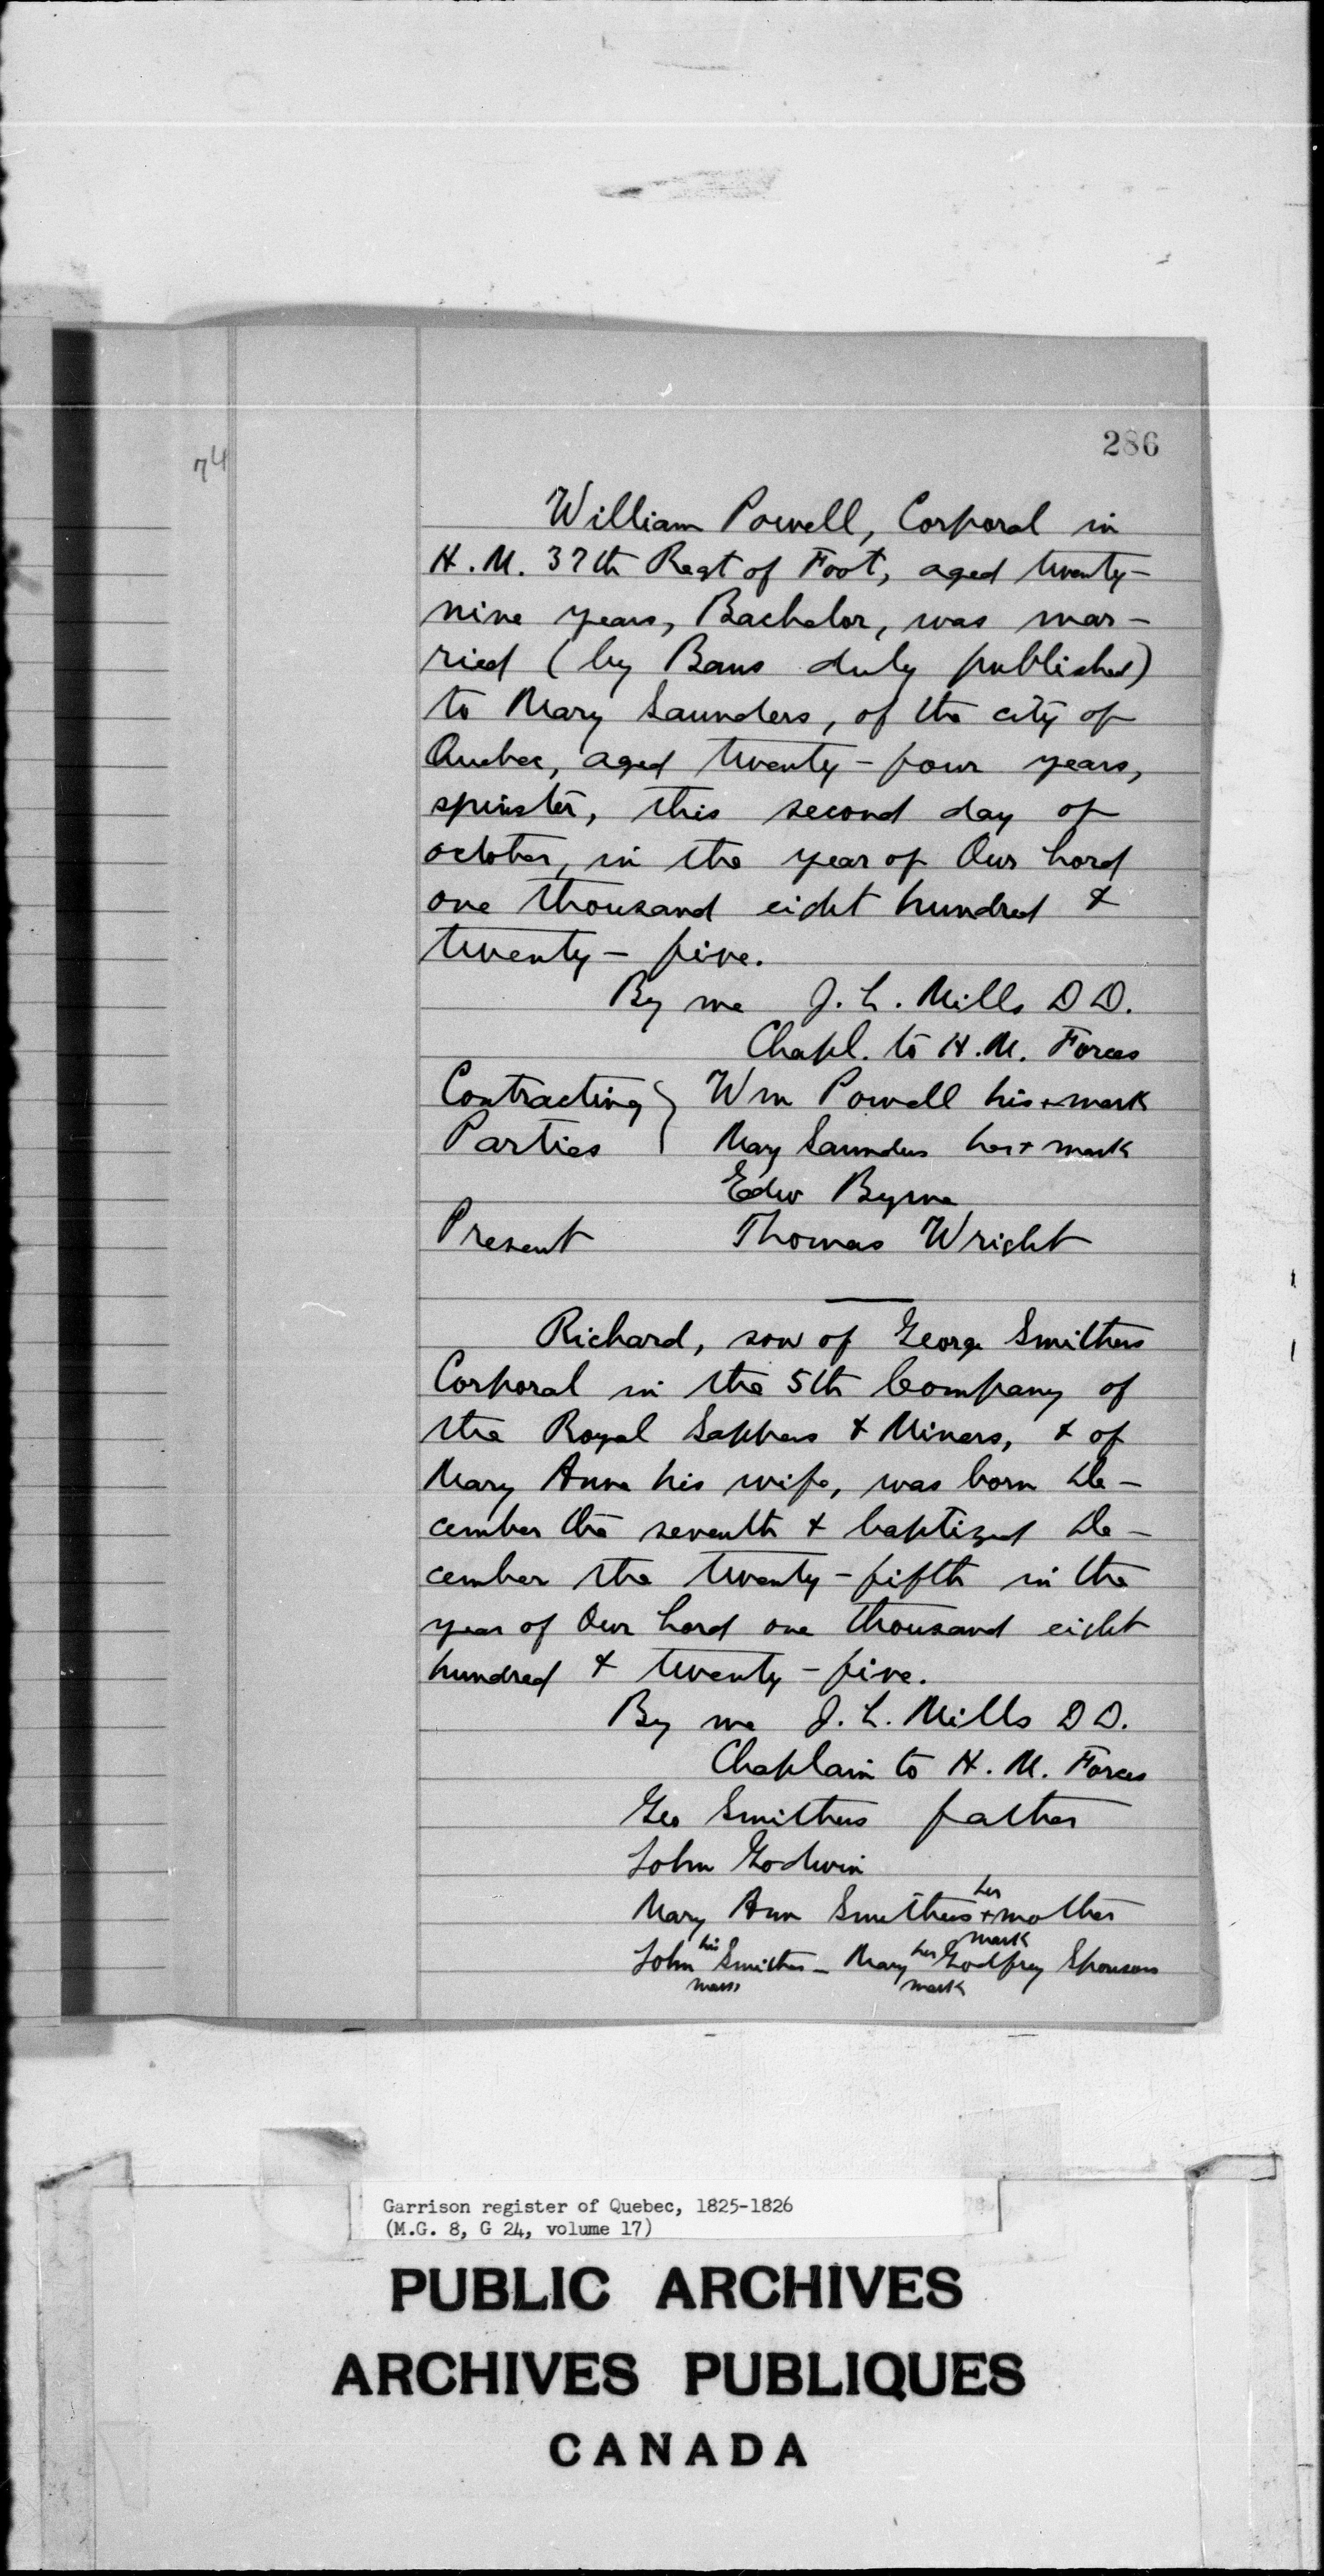 286
74
William Powell, Corporal in
H.M. 37th Regt of Foot, aged twenty-
nine years, Bachelor, was mar-
ried (by Bans duly published)
to Mary Saunders, of the city of
Quebec, aged twenty-four years,
spinster, this second day of
october, in the year of Our Lord
one thousand eight hundred &
twenty-five.
By me J. L. Mills D D.
Chapl. to H.M. Forces
Contracting } Wm Powell his + mark
Parties Mary Saunders her + mark
Edw Byrne
Present Thomas Wright
Richard, son of George Smithers
Corporal in the 5th Company of
the Royal Sappers & Miners, & of
Mary Anne his wife, was born De-
cember the seventh & baptized De-
cember the twenty-fifth in the
year of Our Lord one thousand eight
hundred & twenty-five.
By me J. L. Mills D D.
Chaplain to H.M. Forces
Geo Smithers father
John Godwin
Mary Ann Smithers her + mark mother
John his mark Smithers - Mary her mark Godfrey Sponsors
Garrison register of Quebec, 1825-1826
(M.G. 8, G 24, volume 17)
PUBLIC ARCHIVES
ARCHIVES PUBLIQUES
CANADA